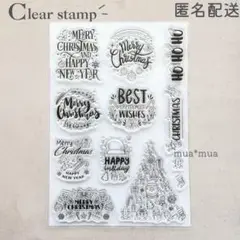 Clear stamp
匿名配送
MERRY
CHRISTMAS
AND
HAPPY
NEW YEAR
Merry
Christmas
HO HO HO
Merry
Christmas
BEST
WISHES
CHRISTMAS
Merry
Christmas
AND
HAPPY
NEW YEAR
HAPPY
holiday
MERRY
CHRISTMAS
mua*mua